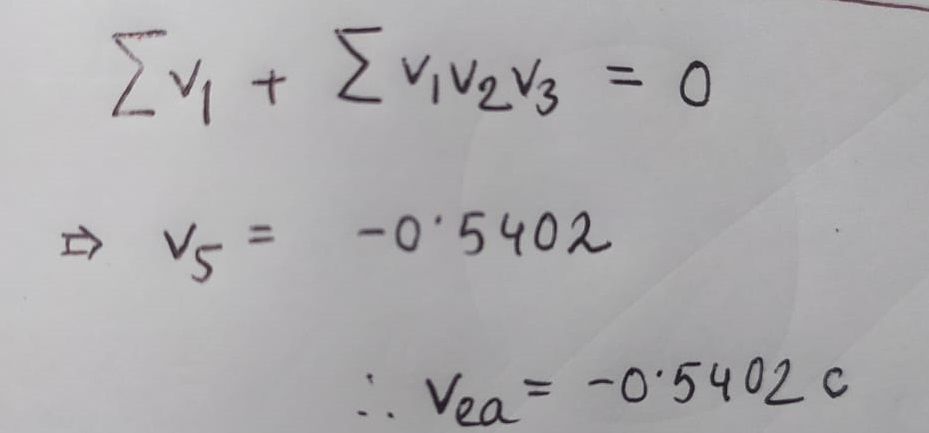 ∑v₁ + ∑v₁v₂v₃ = 0
⇒ v₅ = -0·5402
∴ vₑₐ = -0·5402 c